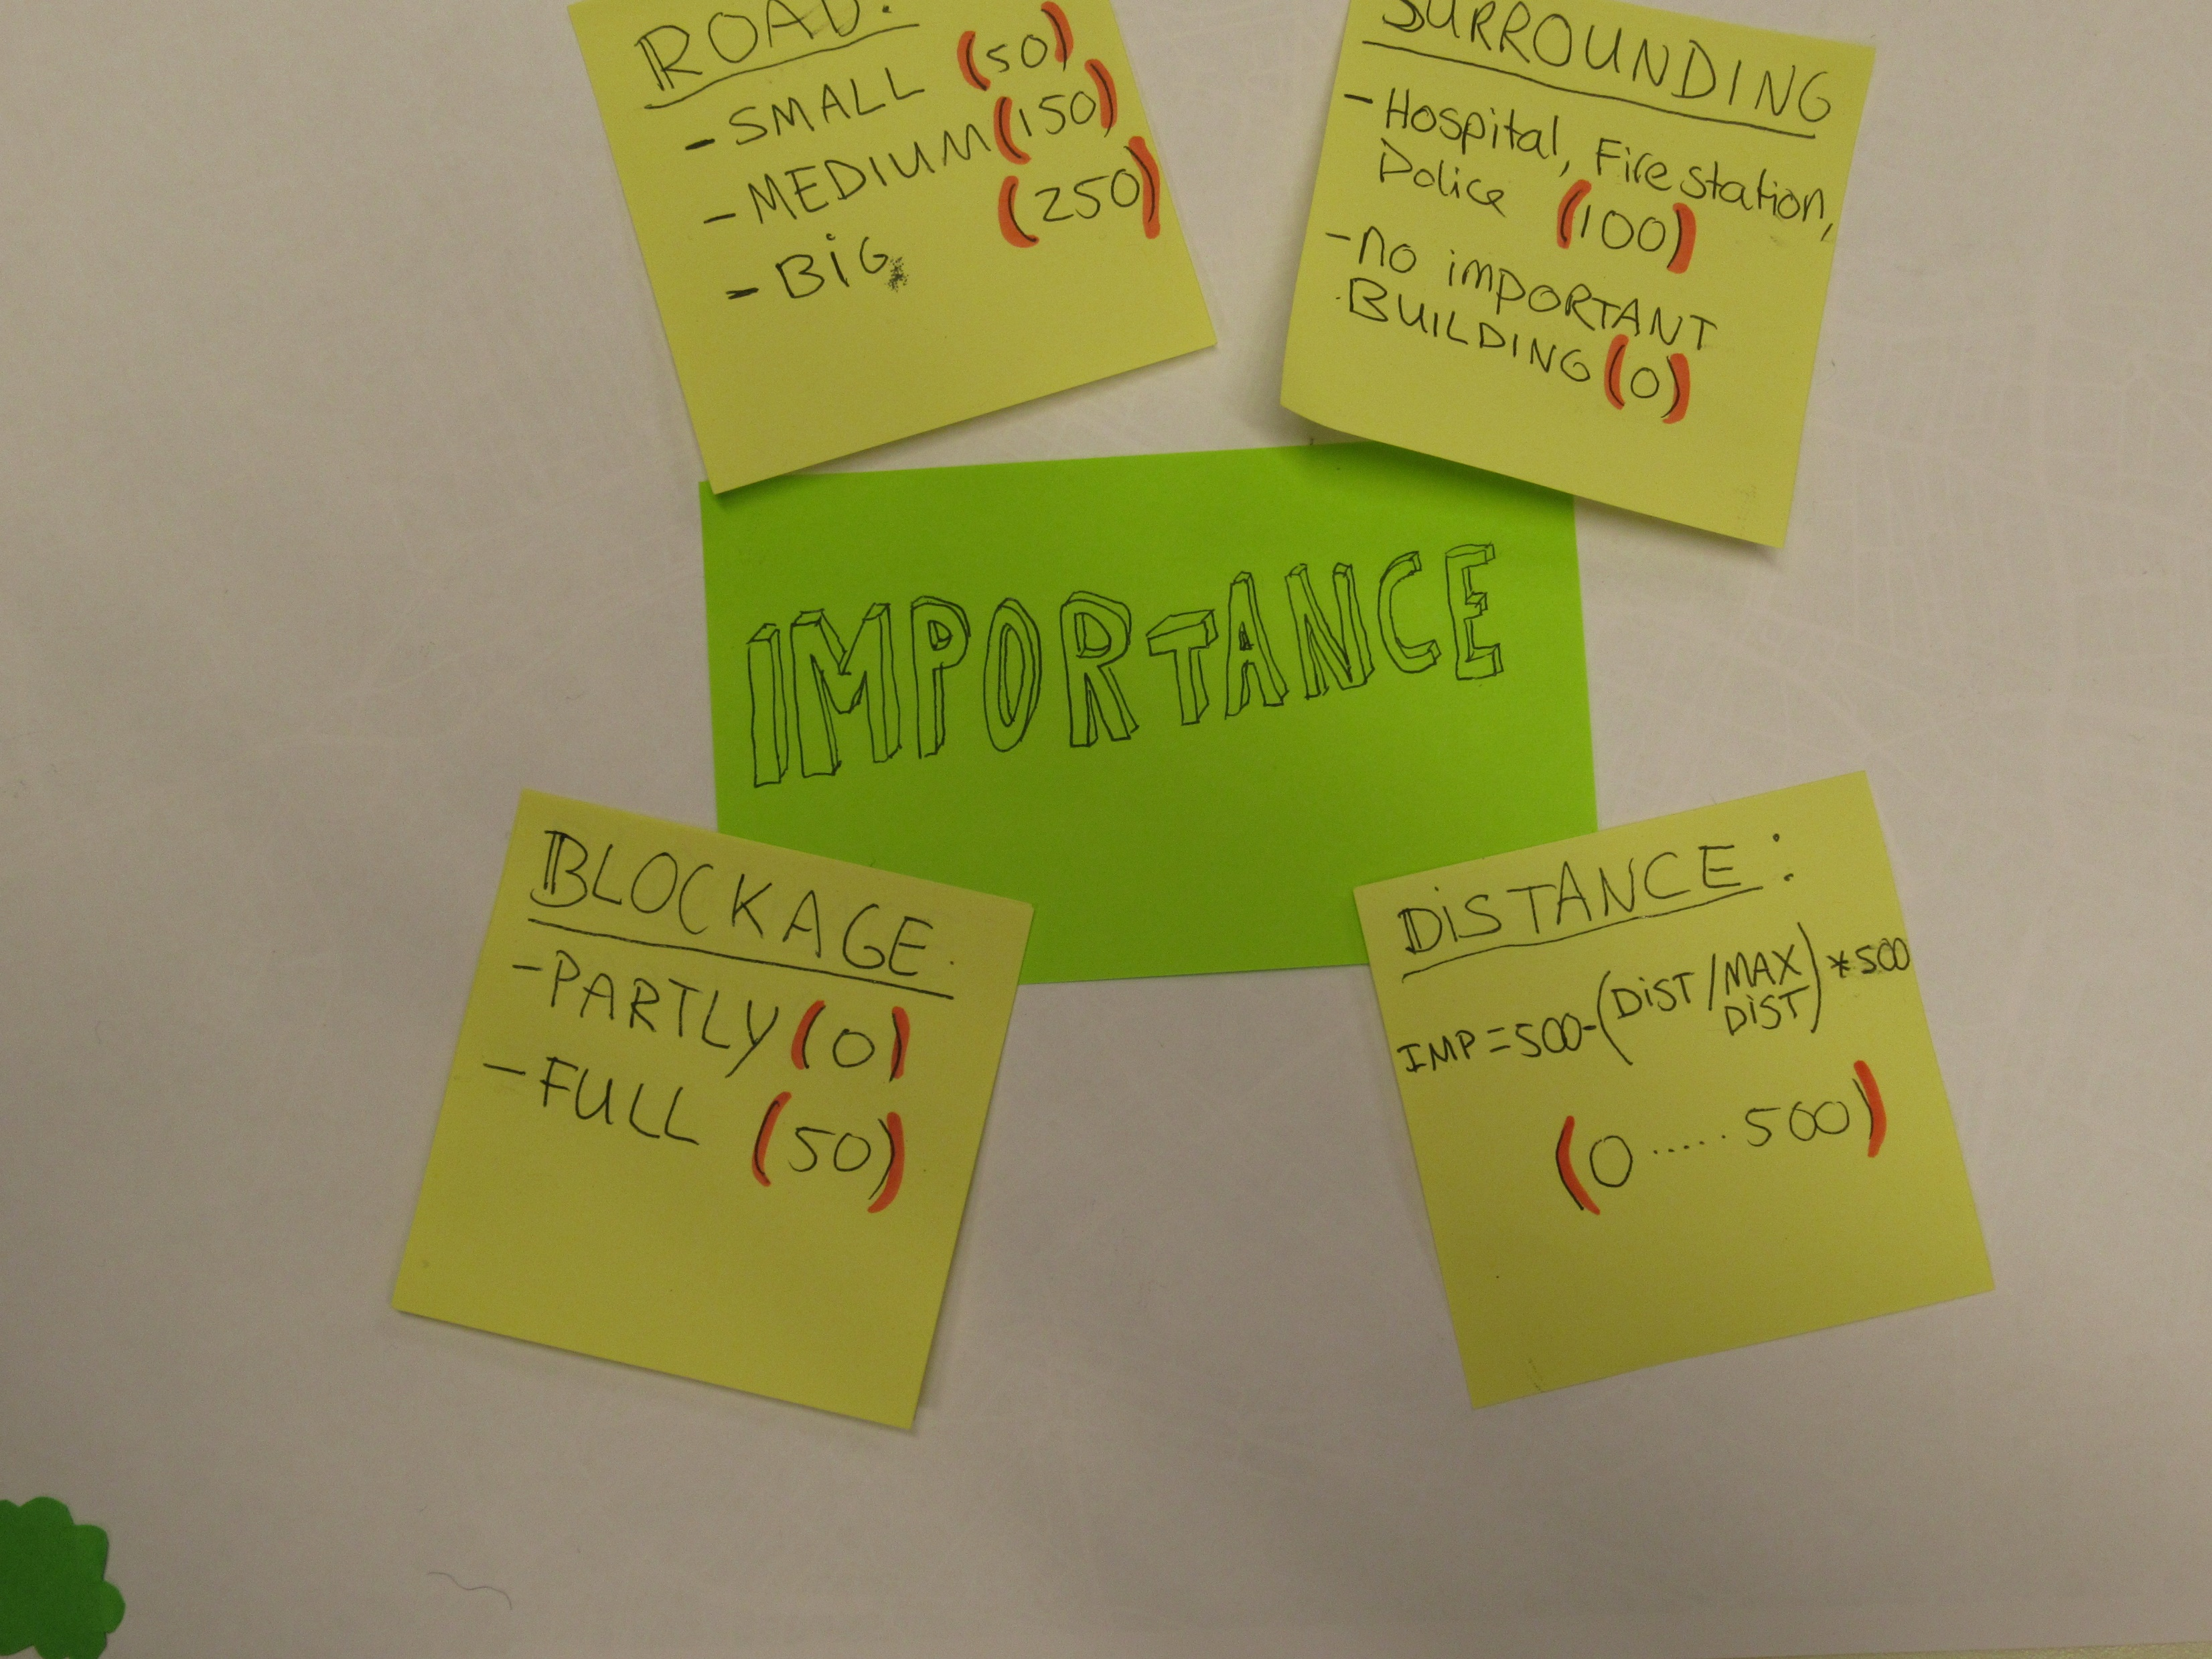 ROAD:
- SMALL (50)
- MEDIUM (150)
- BiG (250)
SURROUNDING
- Hospital, Fire station,
Police (100)
- no imPORTANT
BUILDING (0)
IMPORTANCE
BLOCKAGE.
- PARTLY (0)
- FULL (50)
DiSTANCE:
IMP = 500 - (DiST / MAX DiST) * 500
(0 ...... 500)